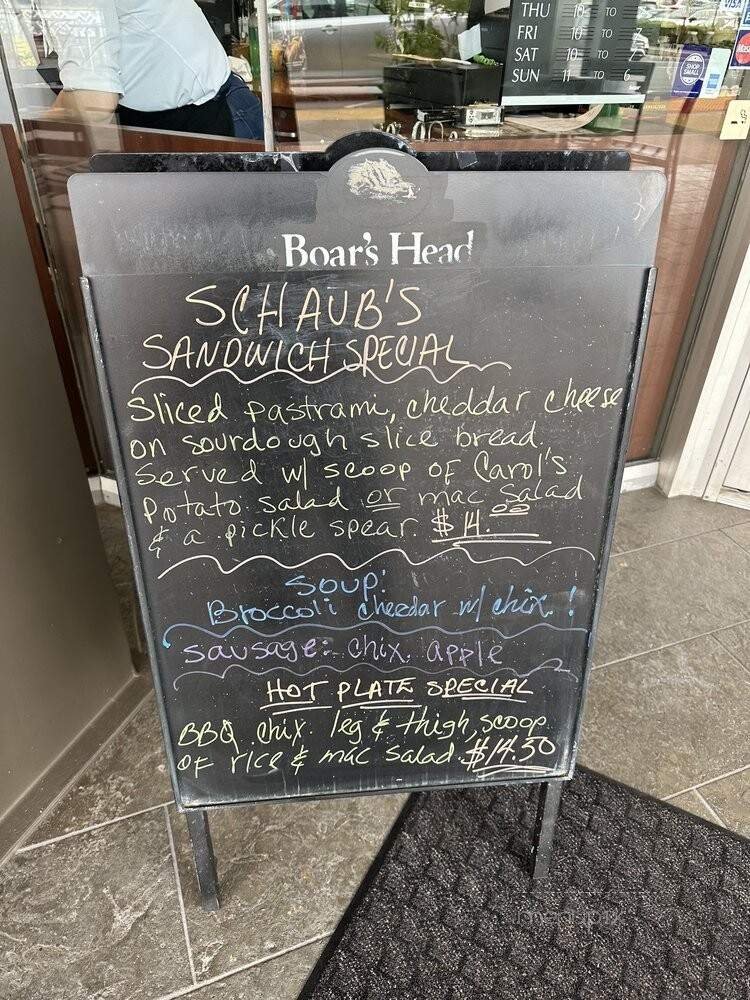 THU 10 TO
FRI 10 TO 7
SAT 10 TO
SUN 11 TO 6
SHOP SMALL
VISA
Boar's Head
SCHAUB'S
SANDWICH SPECIAL
Sliced pastrami, cheddar cheese
on sourdough slice bread.
Served w/ scoop of Carol's
Potato salad or mac salad
& a pickle spear. $14.00
SOUP:
Broccoli cheedar w/ chix.!
Sausage: chix. apple
HOT PLATE SPECIAL
BBQ chix. leg & thigh, scoop
OF rice & mac salad. $14.50